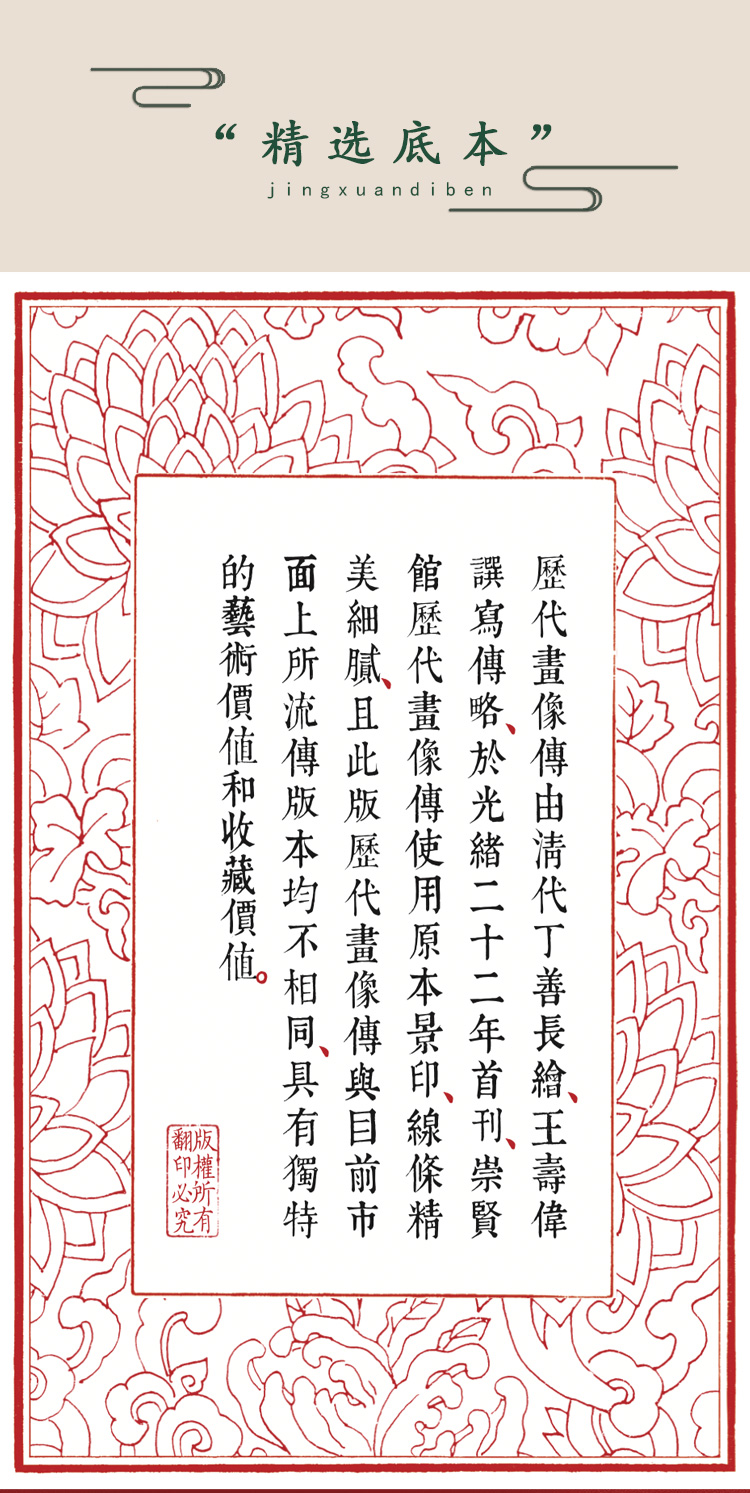 “精选底本”
jingxuandiben
歷代畫像傳由清代丁善長繪、王壽偉
譔寫傳略、於光緒二十二年首刊、崇賢
館歷代畫像傳使用原本景印、線條精
美細膩、且此版歷代畫像傳與目前市
面上所流傳版本均不相同、具有獨特
的藝術價值和收藏價值。
版權所有
翻印必究